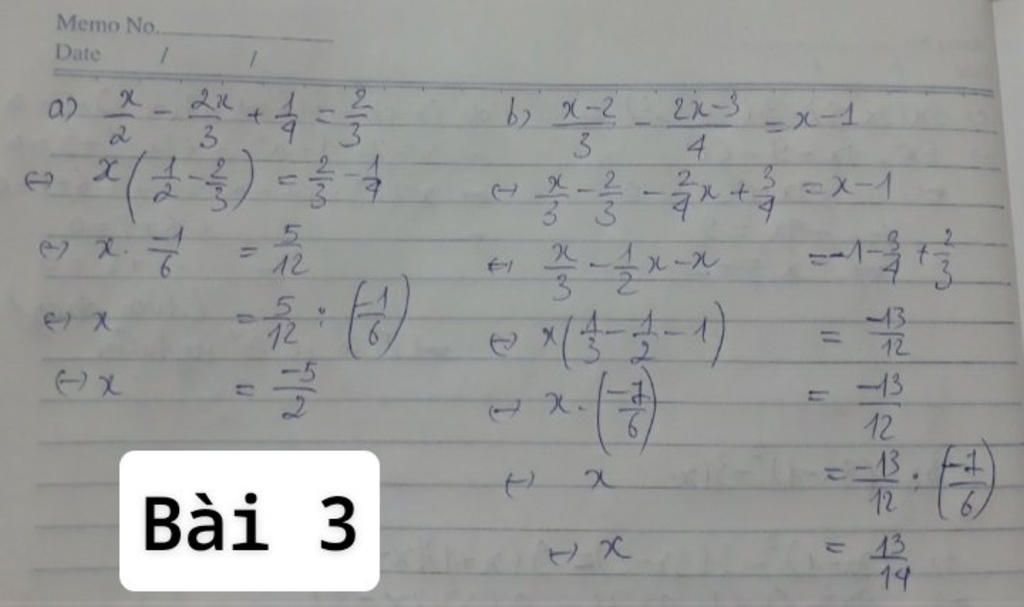 Memo No.
Date / /
a) x/2 - 2x/3 + 1/4 = 2/3
⇔ x(1/2 - 2/3) = 2/3 - 1/4
⇔ x. -1/6 = 5/12
⇔ x = 5/12 : (-1/6)
⇔ x = -5/2
b) x-2/3 - 2x-3/4 = x-1
⇔ x/3 - 2/3 - 2/4x + 3/4 = x-1
⇔ x/3 - 1/2x - x = -1 - 3/4 + 2/3
⇔ x(1/3 - 1/2 - 1) = -13/12
⇔ x. (-7/6) = -13/12
⇔ x = -13/12 : (-7/6)
⇔ x = 13/14
Bài 3